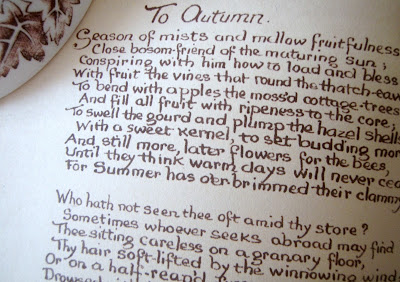 To Autumn.
Season of mists and mellow fruitfulness
Close bosom-friend of the maturing sun;
Conspiring with him how to load and bless
With fruit the vines that round the thatch-eav
To bend with apples the moss'd cottage-trees
And fill all fruit with ripeness to the core;
To swell the gourd and plump the hazel shells
With a sweet kernel; to set budding mor
And still more, later flowers for the bees,
Until they think warm days will never cea
For Summer has o'er-brimmed their clammy
Who hath not seen thee oft amid thy store?
Sometimes whoever seeks abroad may find
Thee sitting careless on a granary floor,
Thy hair soft-lifted by the winnowing wind
Or on a half-reap'd